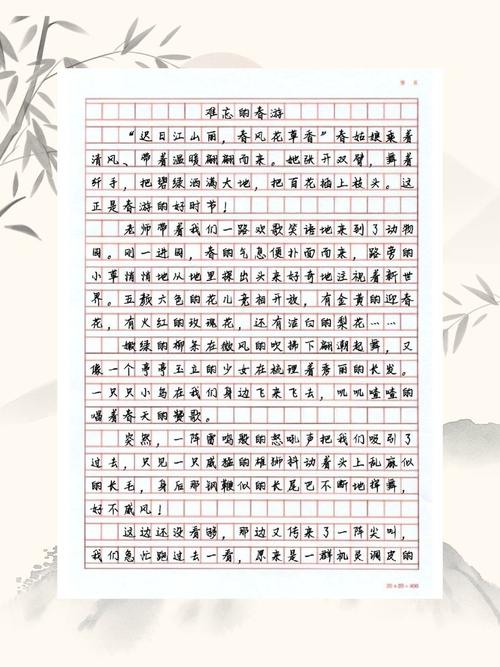 难忘的春游
“迟日江山丽，春风花草香”春姑娘乘着
清风、带着温暖翩翩而来。她张开双臂，舞着
纤手，把碧绿洒满大地，把百花插上枝头。这
正是春游的好时节！
老师带着我们一路欢歌笑语地来到了动物
园。刚一进园，春的气息便扑面而来，路旁的
小草悄悄地从地里探出头来好奇地注视着新世
界。五颜六色的花儿竞相开放，有金黄的迎春
花，有火红的玫瑰花，还有洁白的梨花……
嫩绿的柳条在微风的吹拂下翩潮起舞，又
像一个亭亭玉立的少女在梳理着秀丽的长发。
一只只小鸟在我们身边飞来飞去，叽叽喳喳的
唱着春天的赞歌。
突然，一阵雷鸣般的怒吼声把我们吸引了
过去，只见一只威猛的雄狮抖动着头上乱麻似
的长毛，身后那钢鞭似的长尾巴不断地挥舞，
好不威风！
这边还没看够，那边又传来了一阵尖叫，
我们急忙跑过去一看，原来是一群机灵调皮的
20×20=400